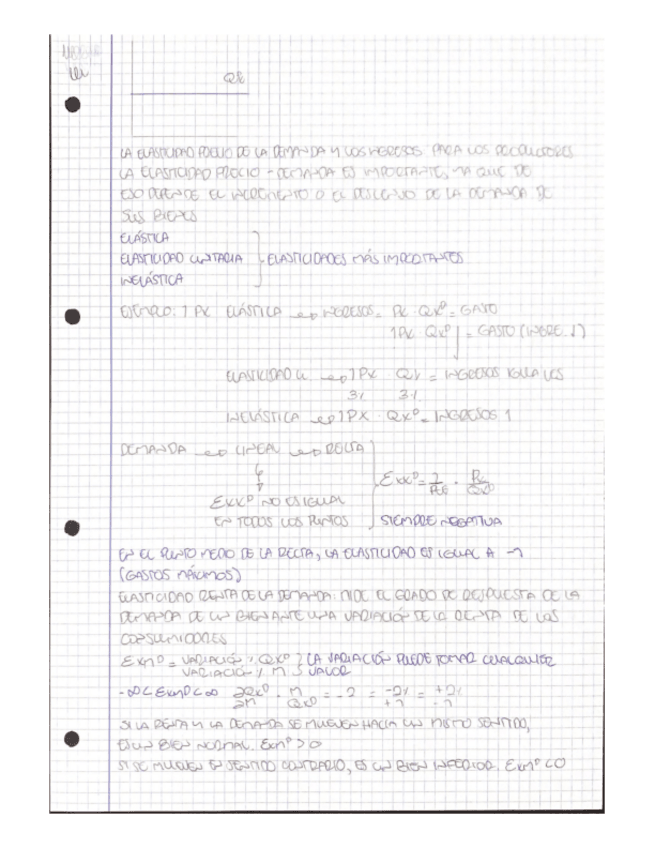 Qx
LA ELASTICIDAD PRECIO DE LA DEMANDA Y LOS INGRESOS. PARA LOS PRODUCTORES
LA ELASTICIDAD PRECIO - DEMANDA ES IMPORTANTE, YA QUE DE
ESO DEPENDE EL INCREMENTO O EL DESCENSO DE LA DEMANDA DE
SUS BIENES
ELÁSTICA
ELASTICIDAD UNITARIA } ELASTICIDADES MÁS IMPORTANTES
INELÁSTICA
EJEMPLO: ↑ PX ELÁSTICA → INGRESOS = PX · QXᴰ = GASTO
↑PX QXᴰ↓ = GASTO (INGRE. ↓)
ELASTICIDAD U. → ↑PX QX↓ = INGRESOS IGUALES
3% 3%
INELÁSTICA → ↑PX · QXᴰ = INGRESOS ↑
DEMANDA → LINEAL → RECTA
EXXᴰ NO ES IGUAL
EN TODOS LOS PUNTOS
EXXᴰ = 1/PTE · PX/QXᴰ
SIEMPRE NEGATIVA
EN EL PUNTO MEDIO DE LA RECTA, LA ELASTICIDAD ES IGUAL A -1
(GASTOS MÁXIMOS)
ELASTICIDAD RENTA DE LA DEMANDA: MIDE EL GRADO DE RESPUESTA DE LA
DEMANDA DE UN BIEN ANTE UNA VARIACIÓN DE LA RENTA DE LOS
CONSUMIDORES
EXMᴰ = VARIACIÓN % QXᴰ / VARIACIÓN % M } LA VARIACIÓN PUEDE TOMAR CUALQUIER
VALOR
-∞ < EXMᴰ < ∞ ∂QXᴰ/∂M · M/QXᴰ = -2 = -2%/+1 = +2%/-1
SI LA RENTA Y LA DEMANDA SE MUEVEN HACIA UN MISMO SENTIDO,
ES UN BIEN NORMAL. EXMᴰ > 0
SI SE MUEVEN EN SENTIDO CONTRARIO, ES UN BIEN INFERIOR. EXMᴰ < 0